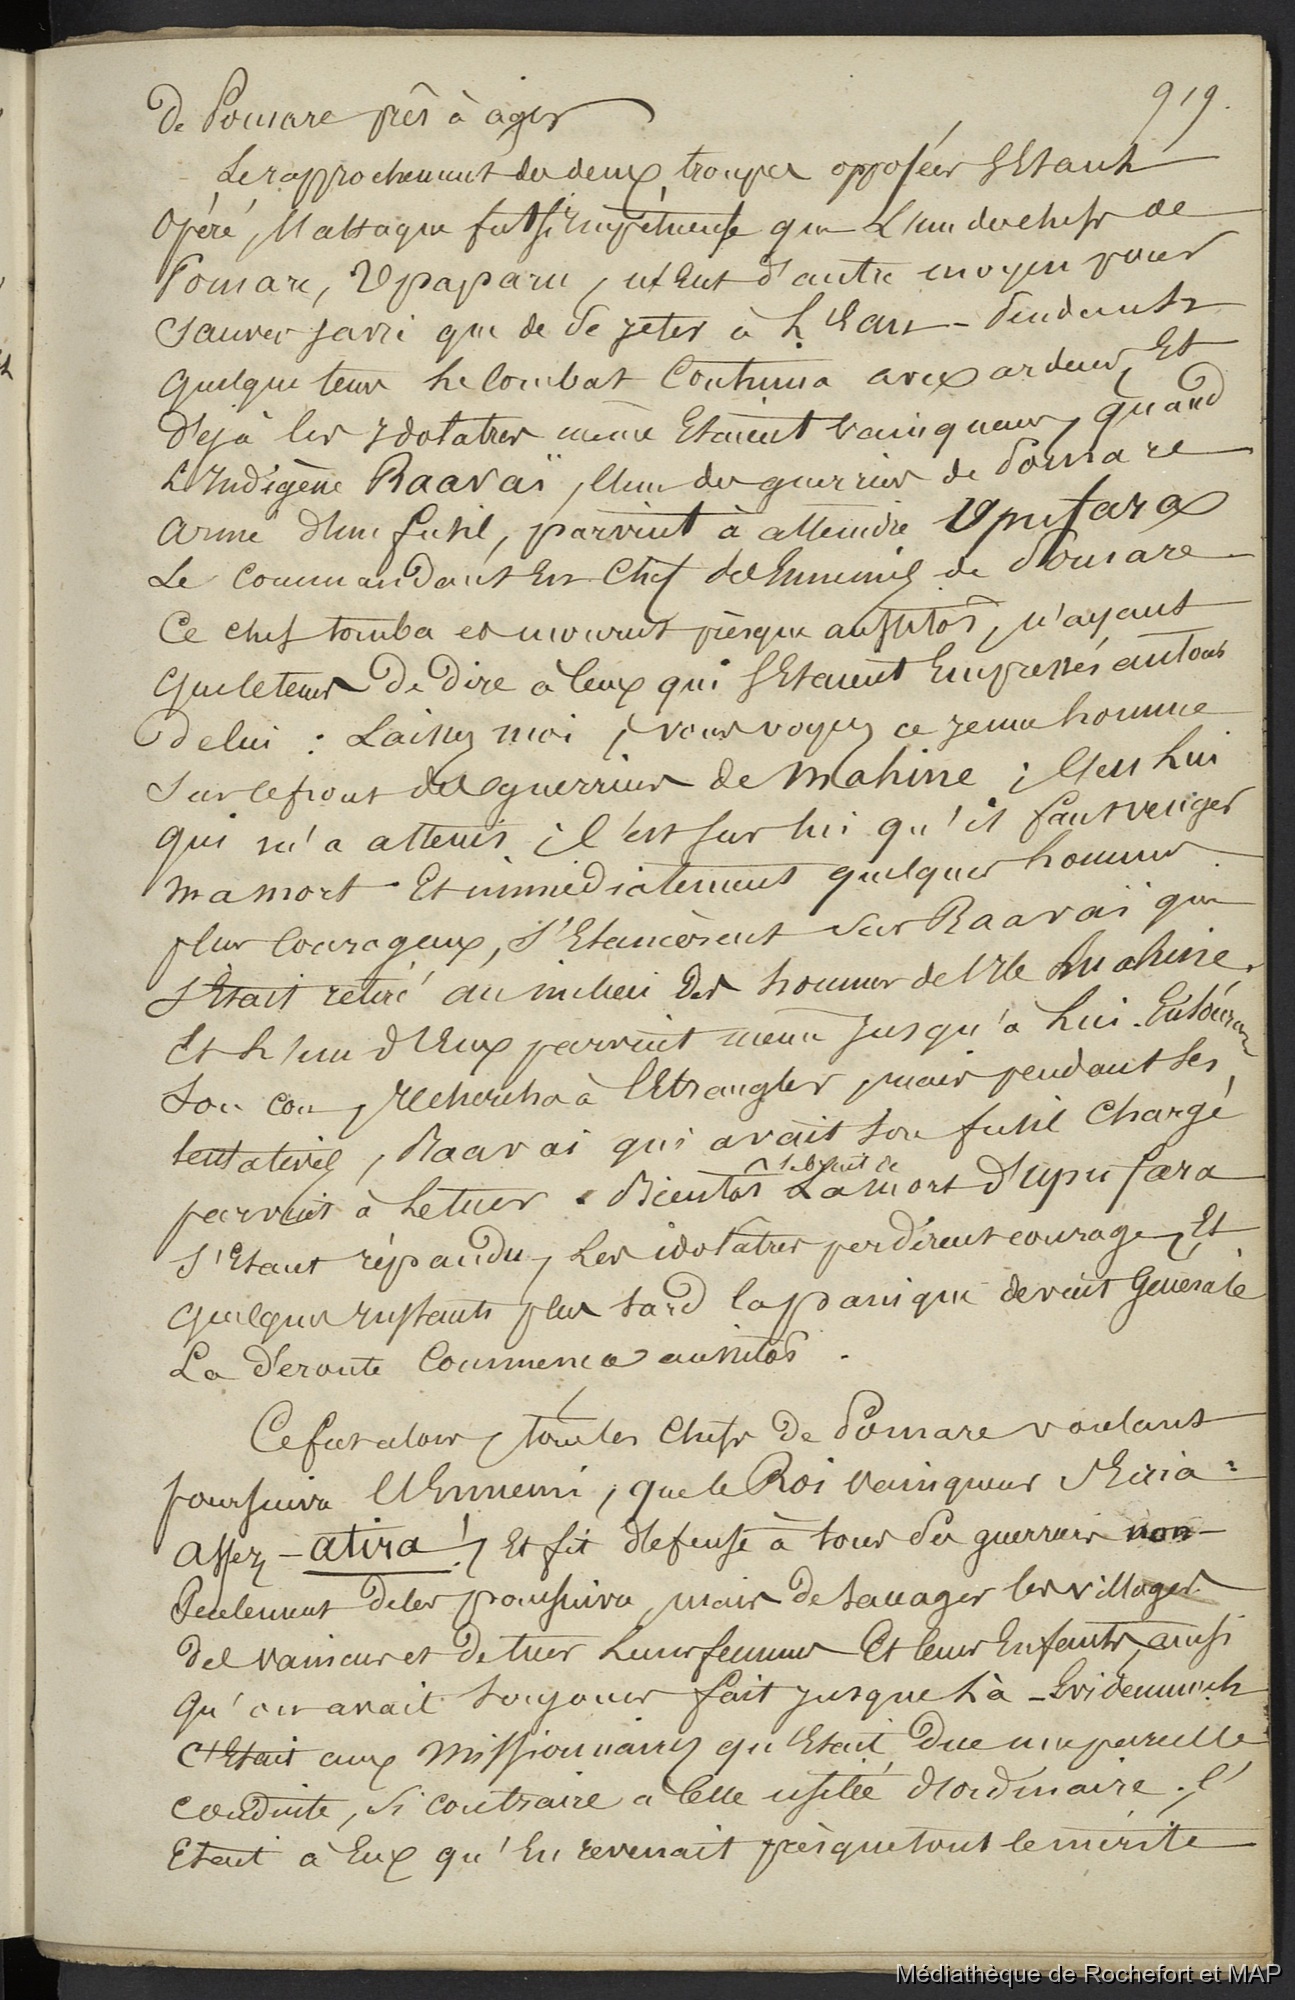 919.
de Pomare près à agir
Le rapprochement des deux troupes opposées s'Etant
Opéré, l'attaque fut si impétueuse que L'un des chefs de
Pomare, Upaparu, n'eut d'autre moyen pour
sauver sa vie que de se jeter à L'Eau - Pendant
quelque tems Le Combat Continua avec ardeur, Et
déjà les Idolatres même Etaient vainqueurs, quand
L'Indigène Raavaï, l'un des guerriers de Pomare
armé d'un fusil, parvint à atteindre Upufara
Le Commandant En Chef des Ennemis de Pomare
Ce chef tomba et mourut presque aussitôt, n'ayant
que le tems De dire à Ceux qui s'Etaient Empressés autour
de lui : Laissez moi, vous voyez ce jeune homme
sur le front des guerriers de Mahine ; C'est Lui
qui m'a atteint ; C'est sur lui qu'il faut venger
ma mort. Et immédiatement quelques hommes
plus Courageux, s'Elancèrent sur Raavaï qui
s'Etait retiré au milieu Des hommes de l'Ile Huahine.
Et L'un d'Eux parvint même jusqu'à Lui. Entouran
Son cou, rechercha à l'Etrangler, mais pendant Ses
tentatives, Raavai qui avait Son fusil Chargé
parvint à Le tuer. Bientôt le bruit de La mort d'Upufara
s'Etant répandu, Les idolâtres perdirent courage, Et
quelques Instants plus tard la panique devint Générale
La déroute Commença aussitôt.
Ce fut alors, tous les Chefs de Pomare voulant
poursuivre l'Ennemi, que le Roi Vainqueur s'Ecria :
Assez - atira ! Et fit défense à tous Ses guerriers non
Seulement de les poursuivre, mais De saccager les villages
des vaincus et De tuer Leurs femmes Et leurs Enfants, ainsi
qu'on avait toujours fait jusque Là - Evidemment
C'Etait aux Missionnaires qu'Etait Due une pareille
conduite, si contraire à Celle usitée d'ordinaire ; C'
Etait à Eux qu'En revenait presque tout le mérite
Médiathèque de Rochefort et MAP